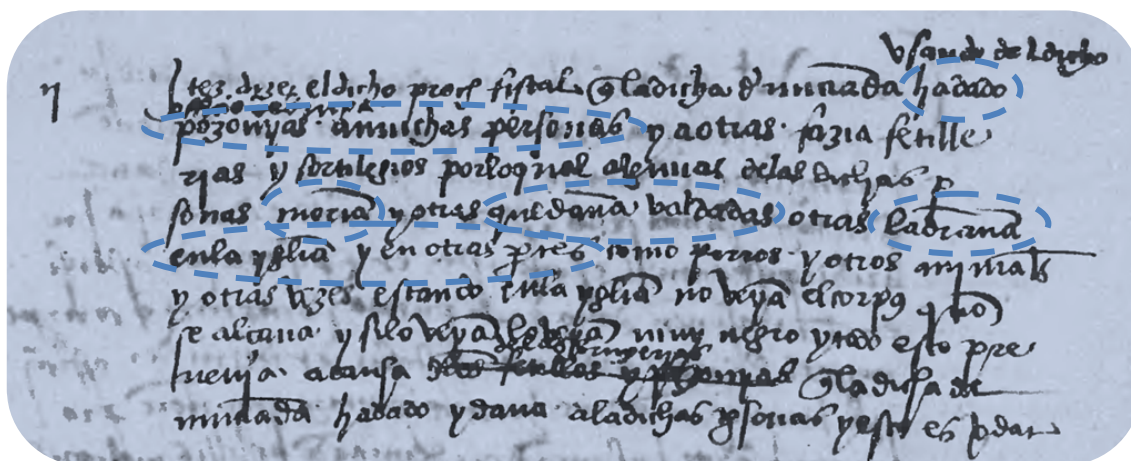 vsando de l dicho
Itez dize el dicho procr fistal q̃ la dicha d'nunciada ha dado
pozonyas a muchas personas y a otras fazia fetille
rias y sortilegios por lo qual algunas de las dichas p̱
sonas moriã y otras quedauã baldadas otras ladrauã
en la yglia y en otras p̱tes como perros y otros animals
y otras vezes estando en la yglia no veya el corpus qñdo
se alçaua y si lo veya lo veya muy negro y todo esto pre
uenja a causa fetillos q̃ la dicha de
nunciada ha dado y daua a la dichas p̱sonas y esto es